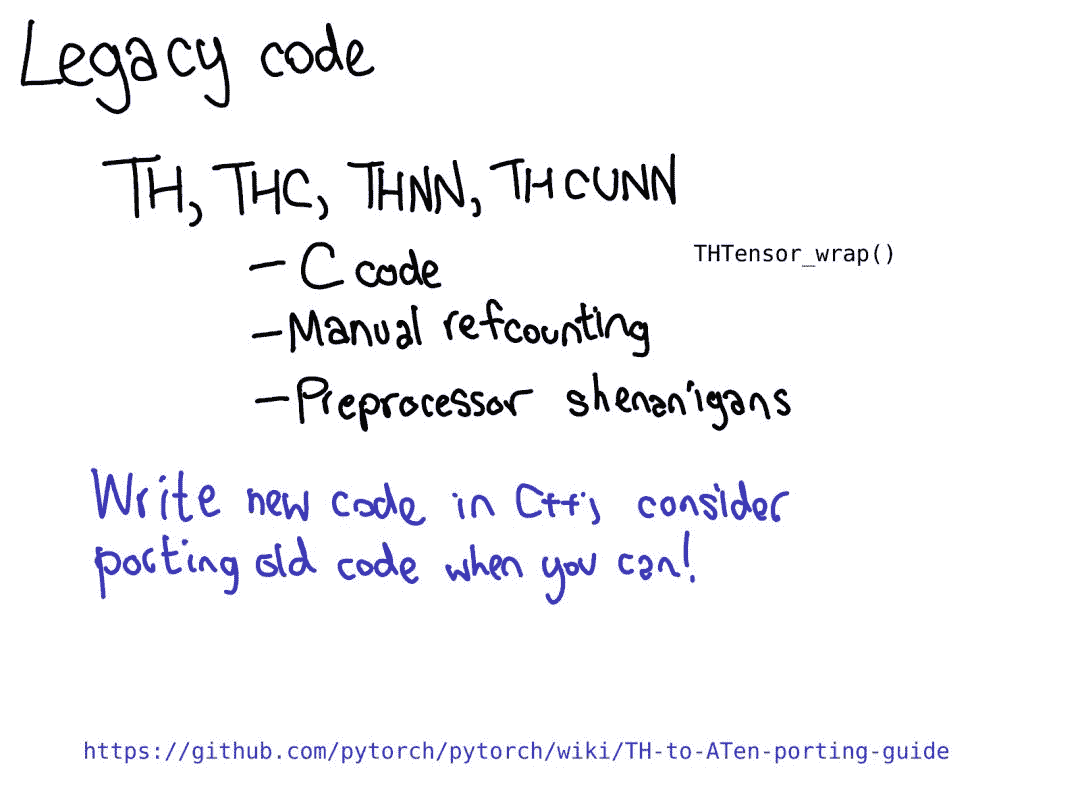 Legacy code
TH, THC, THNN, THCUNN
- C code
THTensor_wrap()
- Manual refcounting
- Preprocessor shenanigans
Write new code in C++; consider
porting old code when you can!
https://github.com/pytorch/pytorch/wiki/TH-to-ATen-porting-guide